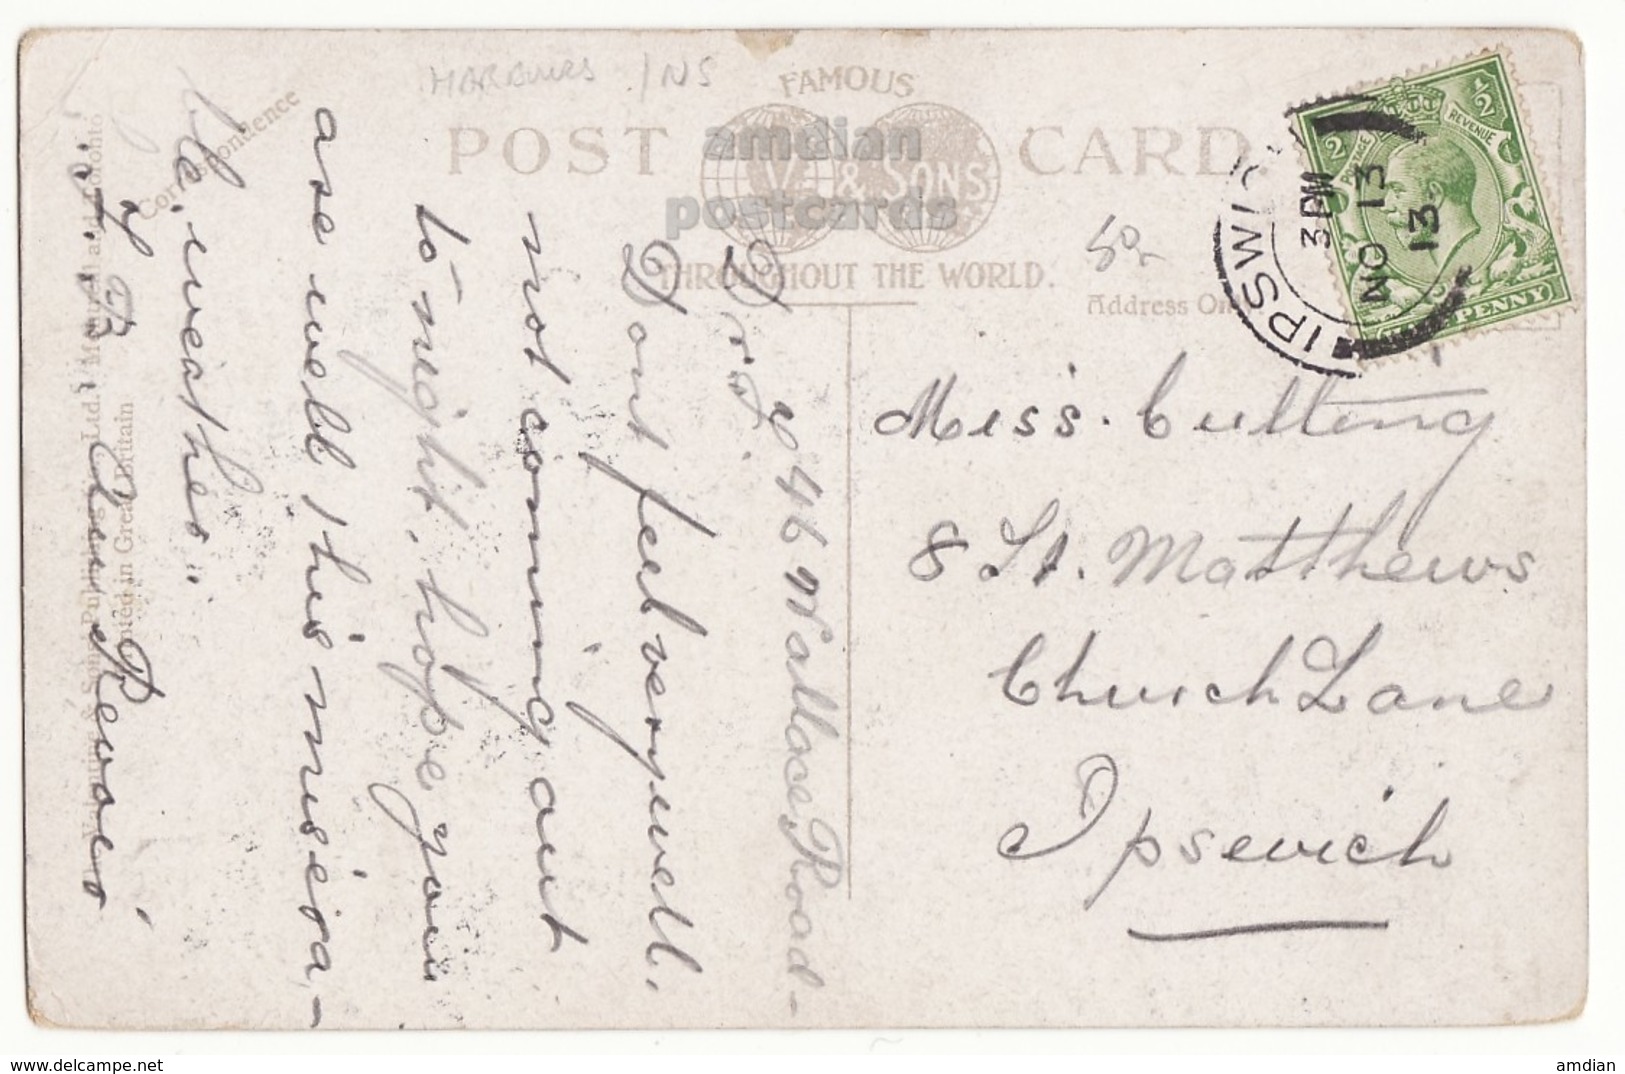 HARBOURS / NS
FAMOUS
POST CARD
V. & SONS
THROUGHOUT THE WORLD.
amdian
postcards
Correspondence
Address Only
IPSWICH
3 PM
NO 13
13
POSTAGE REVENUE
1/2 1/2
HALF PENNY
Miss. Cutting
8 St. Matthews
Church Lane
Ipswich
46 Wallace Road-
Dr F
Dont feel very well.
not coming out
to night, hope you
are well this misera-
ble, weather.
Montreal and Toronto
Printed in Great Britain
www.delcampe.net
amdian